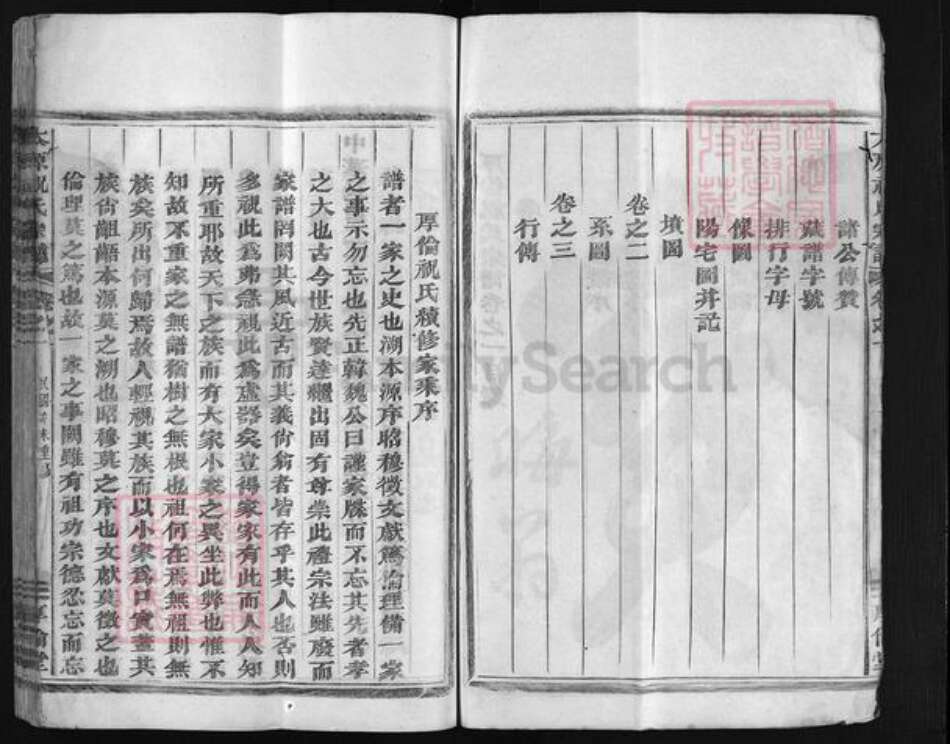 諸公傳贊
藏譜字號
排行字母
像圖
陽宅圖幷記
墳圖
卷之二
系圖
卷之三
行傳
厚倫祝氏續修家乘序
譜者一家之史也溯本源序昭穆徵文獻篤倫理備一家
之事示勿忘也先正韓魏公曰謹家牒而不忘其先者孝
之大也古今世族賢達繼出固有尊崇此禮宗法雖廢而
家譜尚閎其風近古而其義尙翁者皆存乎其人也否則
多視此爲弗急視此爲虛器矣豈得家家有此而人人知
所重耶故天下之族而有大家小家之異坐此弊也惟不
知故不重家之無譜猶樹之無根也祖何在焉無祖則無
族矣所出何歸焉故人輕視其族而以小家爲口實蓋其
族尙齟齬本源莫之溯也昭穆莫之序也文獻莫徵之也
倫理莫之篤也故一家之事闕雖有祖功宗德忽忘而忘
太原祝氏宗譜
卷之一
厚倫堂
FamilySearch